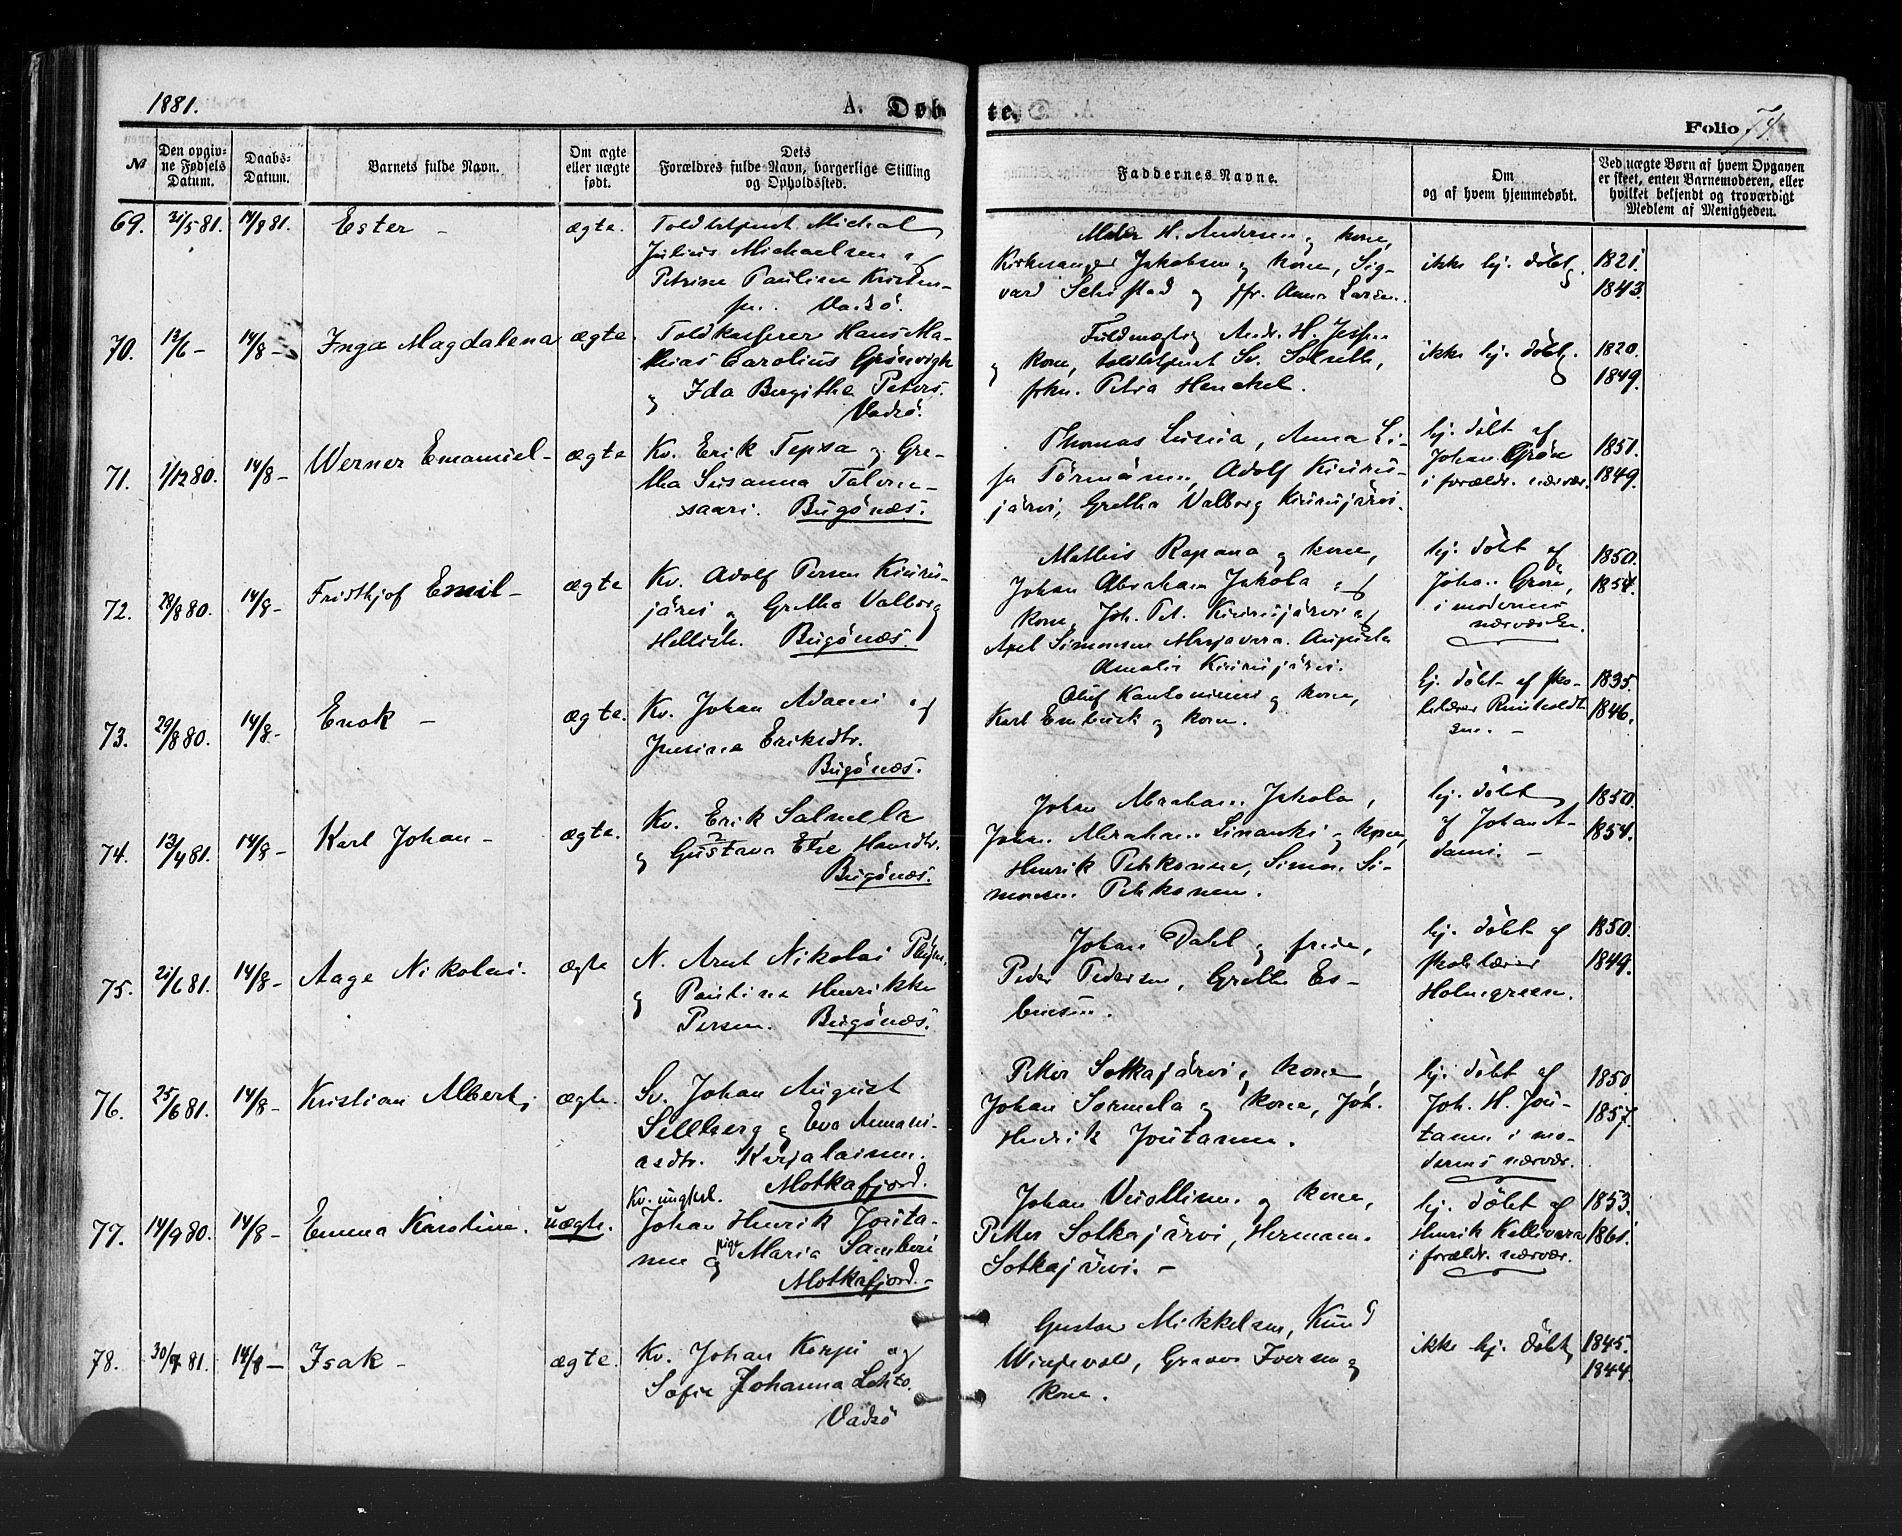 1881.
A. Døbte.
Folio 74.
№
Den opgivne Fødsels Datum.
Daabs-Datum.
Barnets fulde Navn.
Om ægte eller uægte født.
Dets Forældres fulde Navn, borgerlige Stilling og Opholdssted.
Faddernes Navne.
Om og af hvem hjemmedøbt.
Ved uægte Børn af hvem Opgaven er skeet, enten Barnemoderen, eller hvilket beljendt og troværdigt Medlem af Menigheden.
69. 21/5 81. 14/8 81. Ester – ægte.
Toldbetjent Michal
Julius Michaelsen og
Petrine Pauline Kristen-
sen. Vadsø.
H. Andersen og kone,
Kirkesanger Jakobsen og kone, Sig-
vard Schistad og Anna Larsen.
ikke hj. døbt.
1821.
1843.
70. 12/6 – 14/8 – Inga Magdalena ægte.
Toldkasserer Hans Ma-
thias Carolius Grønvigh
og Ida Bergitha Peters.
Vadsø.
Fuldmægtig Andr. H.
og kone, toldbetjent Sv.
frkn. Petra Henckel.
ikke hj. døbt.
1820.
1849.
71. 1/12 80. 14/8 – Werner Emanuel – ægte
Kv. Erik Teppa og Gre-
tha Susanna Talven-
saari. Bugønæs.
Thomas Anna Li-
sa Törmänen, Adolf Kiurus-
järvi, Gretha Valborg Kiurusjärvi.
hj. døbt af
Johan Grön
i forældr. nærvær.
1851.
1849.
72. 28/8 80. 14/8 – Fridthjof Emil – ægte
Kv. Adolf Persen Kiuru-
järvi og Gretha Valborg
Bugønæs.
Mathis Rapana og kone,
Johan Abraham Jakola og
kone, Joh. Pet. Kiurusjärvi og
Axel Simonsen Augusta
Amalie Kiurusjärvi.
hj. døbt af
Johan Grön,
i moderens
nærværelse.
1850.
1854.
73. 29/8 80. 14/8 – Enok – ægte.
Kv. Johan Adami og
Eriksdtr.
Bugønæs.
Oluf og kone,
Karl og kone.
hj. døbt af sko-
lelærer
sen. –
1835.
1846.
74. 13/4 81. 14/8 – Karl Johan – ægte.
Kv. Erik Salmela
og Gustava Else Hansdtr.
Bugønæs.
Johan Abraham Jakola,
Johan Abraham og kone,
Henrik Petikonen, Simon Si-
monsen Petikonen.
hj. døbt
af Johan A-
dami. –
1850.
1854.
75. 21/6 81. 14/8 – Aage Nikolai. ægte
N. Arnt Nikolai
og Pauline Henrikke
Persen. Bugønæs.
Johan Dahl og frue,
Peder Pedersen, Grethe Es-
bensen.
hj. døbt af
skolelærer
Holmgreen.
1850.
1849.
76. 25/6 81. 14/8 – Kristian Albert, ægte.
Sv. Johan August
Sellberg og Eva Anani-
asdtr. Karjalainen.
Motkafjord.
Petter Sotkajärvi og kone,
Johan Sormela og kone, Joh.
Henrik Joutanen.
hj. døbt af
Joh. H. Jou-
tanen i mo-
derens nærvær.
1850.
1857.
77. 14/9 80. 14/8 – Emma Karoline. uægte.
Kv. ungkarl.
Johan Henrik Jouta-
nen og pige Maria
Motkafjord. –
Johan og kone,
Petter Sotkajärvi, Herman
Sotkajärvi. –
hj. døbt af
Henrik Kellivara
i forældr. nærvær.
1853.
1861.
78. 30/7 81. 14/8 – Isak – ægte.
Kv. Johan Korpi og
Sofie Johanna Lehto.
Vadsø
Gustav Mikkelsen, Knud
Iversen og
kone.
ikke hj. døbt
1845.
1844.